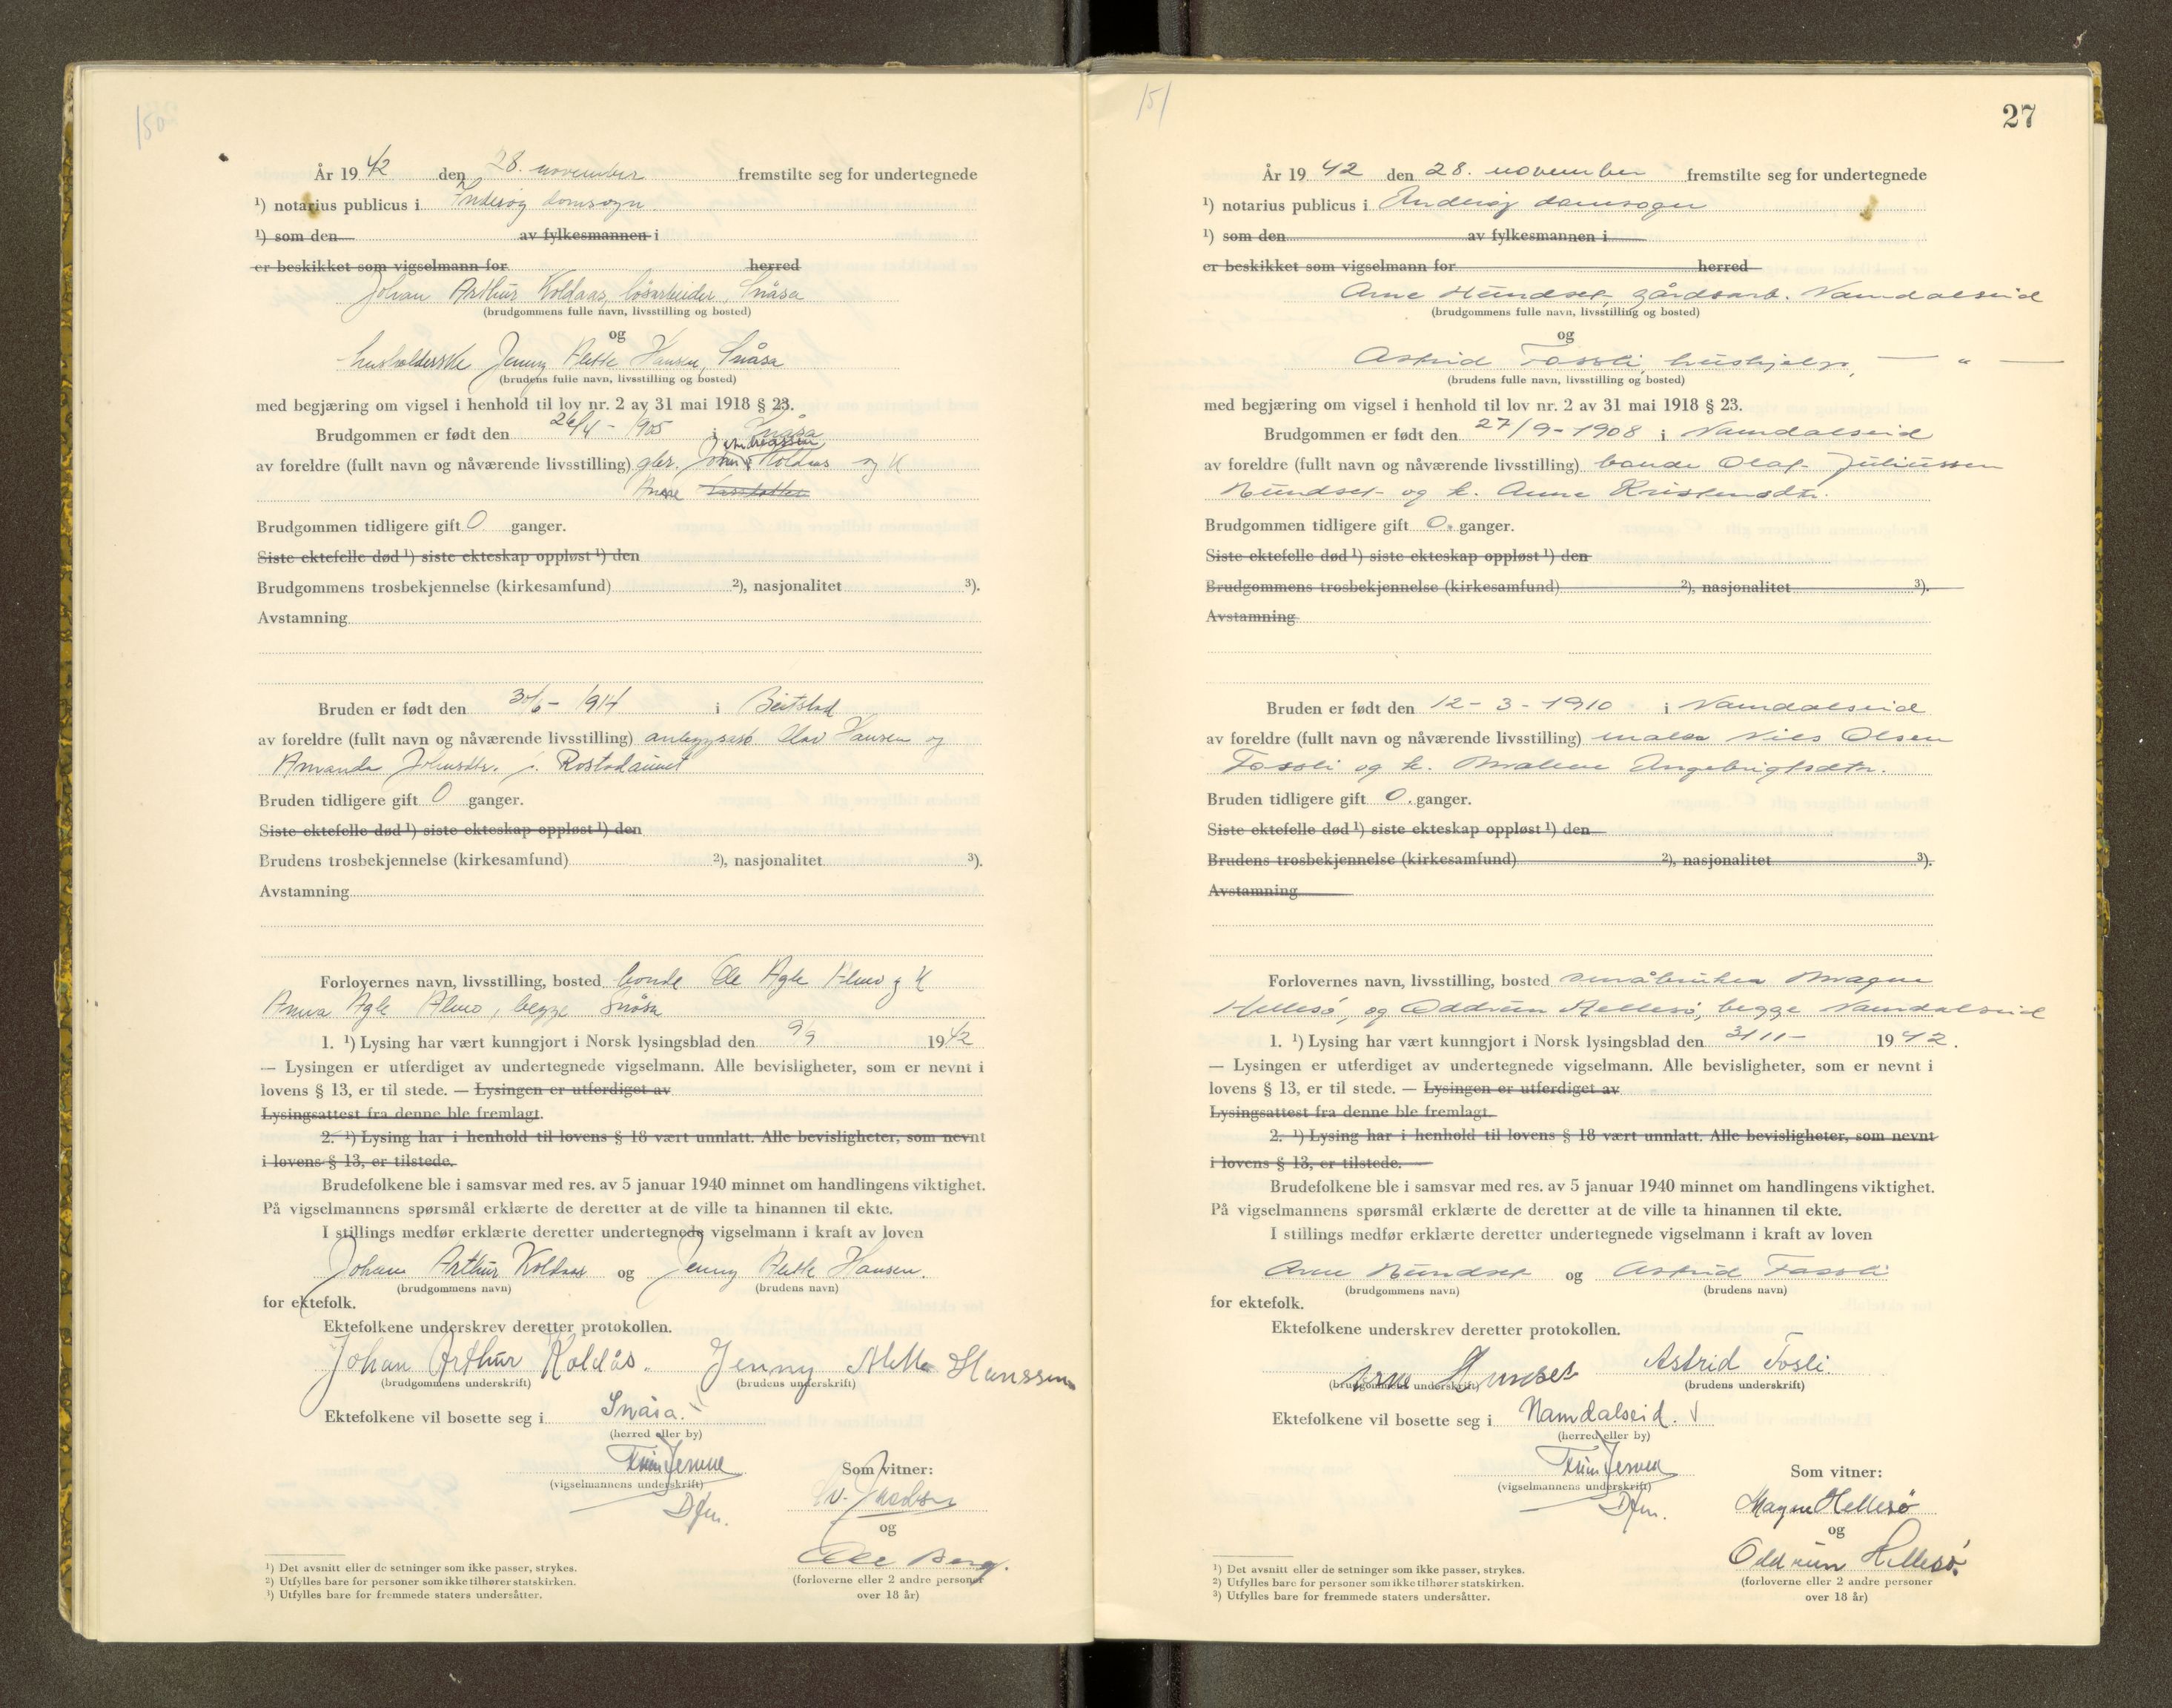 150
År 1942 den 28. november fremstilte seg for undertegnede
¹) notarius publicus i Inderøy domsogn
¹) som den av fylkesmannen i
er beskikket som vigselmann for herred
Johan Arthur Koldaas, løsarbeider, Snåsa
(brudgommens fulle navn, livsstilling og bosted)
og
husholderske Jenny Alette Hansen, Snåsa
(brudens fulle navn, livsstilling og bosted)
med begjæring om vigsel i henhold til lov nr. 2 av 31 mai 1918 § 23.
Brudgommen er født den 26/4 - 1905 i Snåsa
av foreldre (fullt navn og nåværende livsstilling) gbr. Johan Andreassen Koldaas og k
Anne
Brudgommen tidligere gift 0 ganger.
Siste ektefelle død ¹) siste ekteskap oppløst ¹) den
Brudgommens trosbekjennelse (kirkesamfund) ²), nasjonalitet ³).
Avstamning
Bruden er født den 30/6 - 1914 i Beitstad
av foreldre (fullt navn og nåværende livsstilling) anleggsarb Olav Hansen og
Amanda Johnsdtr. f. Rostadaunet
Bruden tidligere gift 0 ganger.
Siste ektefelle død ¹) siste ekteskap oppløst ¹) den
Brudens trosbekjennelse (kirkesamfund) ²), nasjonalitet ³).
Avstamning
Forlovernes navn, livsstilling, bosted bonde Ole Agle Almo og k
Anna Agle Almo, begge Snåsa
1. ¹) Lysing har vært kunngjort i Norsk lysingsblad den 9/9 1942
— Lysingen er utferdiget av undertegnede vigselmann. Alle bevisligheter, som er nevnt i
lovens § 13, er til stede. — Lysingen er utferdiget av
Lysingsattest fra denne ble fremlagt.
2. ¹) Lysing har i henhold til lovens § 18 vært unnlatt. Alle bevisligheter, som nevnt
i lovens § 13, er tilstede.
Brudefolkene ble i samsvar med res. av 5 januar 1940 minnet om handlingens viktighet.
På vigselmannens spørsmål erklærte de deretter at de ville ta hinannen til ekte.
I stillings medfør erklærte deretter undertegnede vigselmann i kraft av loven
Johan Arthur Koldaas og Jenny Alette Hansen.
(brudgommens navn) (brudens navn)
for ektefolk.
Ektefolkene underskrev deretter protokollen.
Johan Arthur Koldås. Jenny Alette Hanssen
(brudgommens underskrift) (brudens underskrift)
Ektefolkene vil bosette seg i Snåsa.
(herred eller by)
(vigselmannens underskrift) Som vitner:
Dfm.
og
Ole Berg.
(forloverne eller 2 andre personer
over 18 år)
¹) Det avsnitt eller de setninger som ikke passer, strykes.
²) Utfylles bare for personer som ikke tilhører statskirken.
³) Utfylles bare for fremmede staters undersåtter.
151
27
År 1942 den 28. november fremstilte seg for undertegnede
¹) notarius publicus i Inderøy domsogn
¹) som den av fylkesmannen i
er beskikket som vigselmann for herred
Arne Hundset, gårdsarb. Namdalseid
(brudgommens fulle navn, livsstilling og bosted)
og
Astrid Fossli, hushjelp, — " —
(brudens fulle navn, livsstilling og bosted)
med begjæring om vigsel i henhold til lov nr. 2 av 31 mai 1918 § 23.
Brudgommen er født den 27/9 - 1908 i Namdalseid
av foreldre (fullt navn og nåværende livsstilling) bonde Olaf Juliussen
Hundset og k. Anne Kristensdtr.
Brudgommen tidligere gift 0. ganger.
Siste ektefelle død ¹) siste ekteskap oppløst ¹) den
Brudgommens trosbekjennelse (kirkesamfund) ²), nasjonalitet ³).
Avstamning
Bruden er født den 12 - 3 - 1910 i Namdalseid
av foreldre (fullt navn og nåværende livsstilling) maler Nils Olsen
Fossli og k. Malene Ingebrigtsdtr.
Bruden tidligere gift 0. ganger.
Siste ektefelle død ¹) siste ekteskap oppløst ¹) den
Brudens trosbekjennelse (kirkesamfund) ²), nasjonalitet ³).
Avstamning
Forlovernes navn, livsstilling, bosted småbruker Magne
Hellesø, og Oddrun Hellesø, begge Namdalseid
1. ¹) Lysing har vært kunngjort i Norsk lysingsblad den 3/11 - 1942.
— Lysingen er utferdiget av undertegnede vigselmann. Alle bevisligheter, som er nevnt i
lovens § 13, er til stede. — Lysingen er utferdiget av
Lysingsattest fra denne ble fremlagt.
2. ¹) Lysing har i henhold til lovens § 18 vært unnlatt. Alle bevisligheter, som nevnt
i lovens § 13, er tilstede.
Brudefolkene ble i samsvar med res. av 5 januar 1940 minnet om handlingens viktighet.
På vigselmannens spørsmål erklærte de deretter at de ville ta hinannen til ekte.
I stillings medfør erklærte deretter undertegnede vigselmann i kraft av loven
Arne Hundset og Astrid Fossli
(brudgommens navn) (brudens navn)
for ektefolk.
Ektefolkene underskrev deretter protokollen.
Arne Hunset Astrid Fosli.
(brudgommens underskrift) (brudens underskrift)
Ektefolkene vil bosette seg i Namdalseid.
(herred eller by)
(vigselmannens underskrift) Som vitner:
Dfm.
Magne Hellesø
og
Oddrun Hellesø
(forloverne eller 2 andre personer
over 18 år)
¹) Det avsnitt eller de setninger som ikke passer, strykes.
²) Utfylles bare for personer som ikke tilhører statskirken.
³) Utfylles bare for fremmede staters undersåtter.